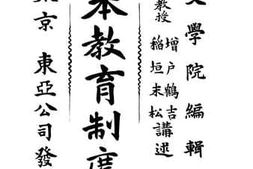 文學院編輯
教授 增戶鶴吉
稻垣末松 講述
本教育制度
京 東亞公司發